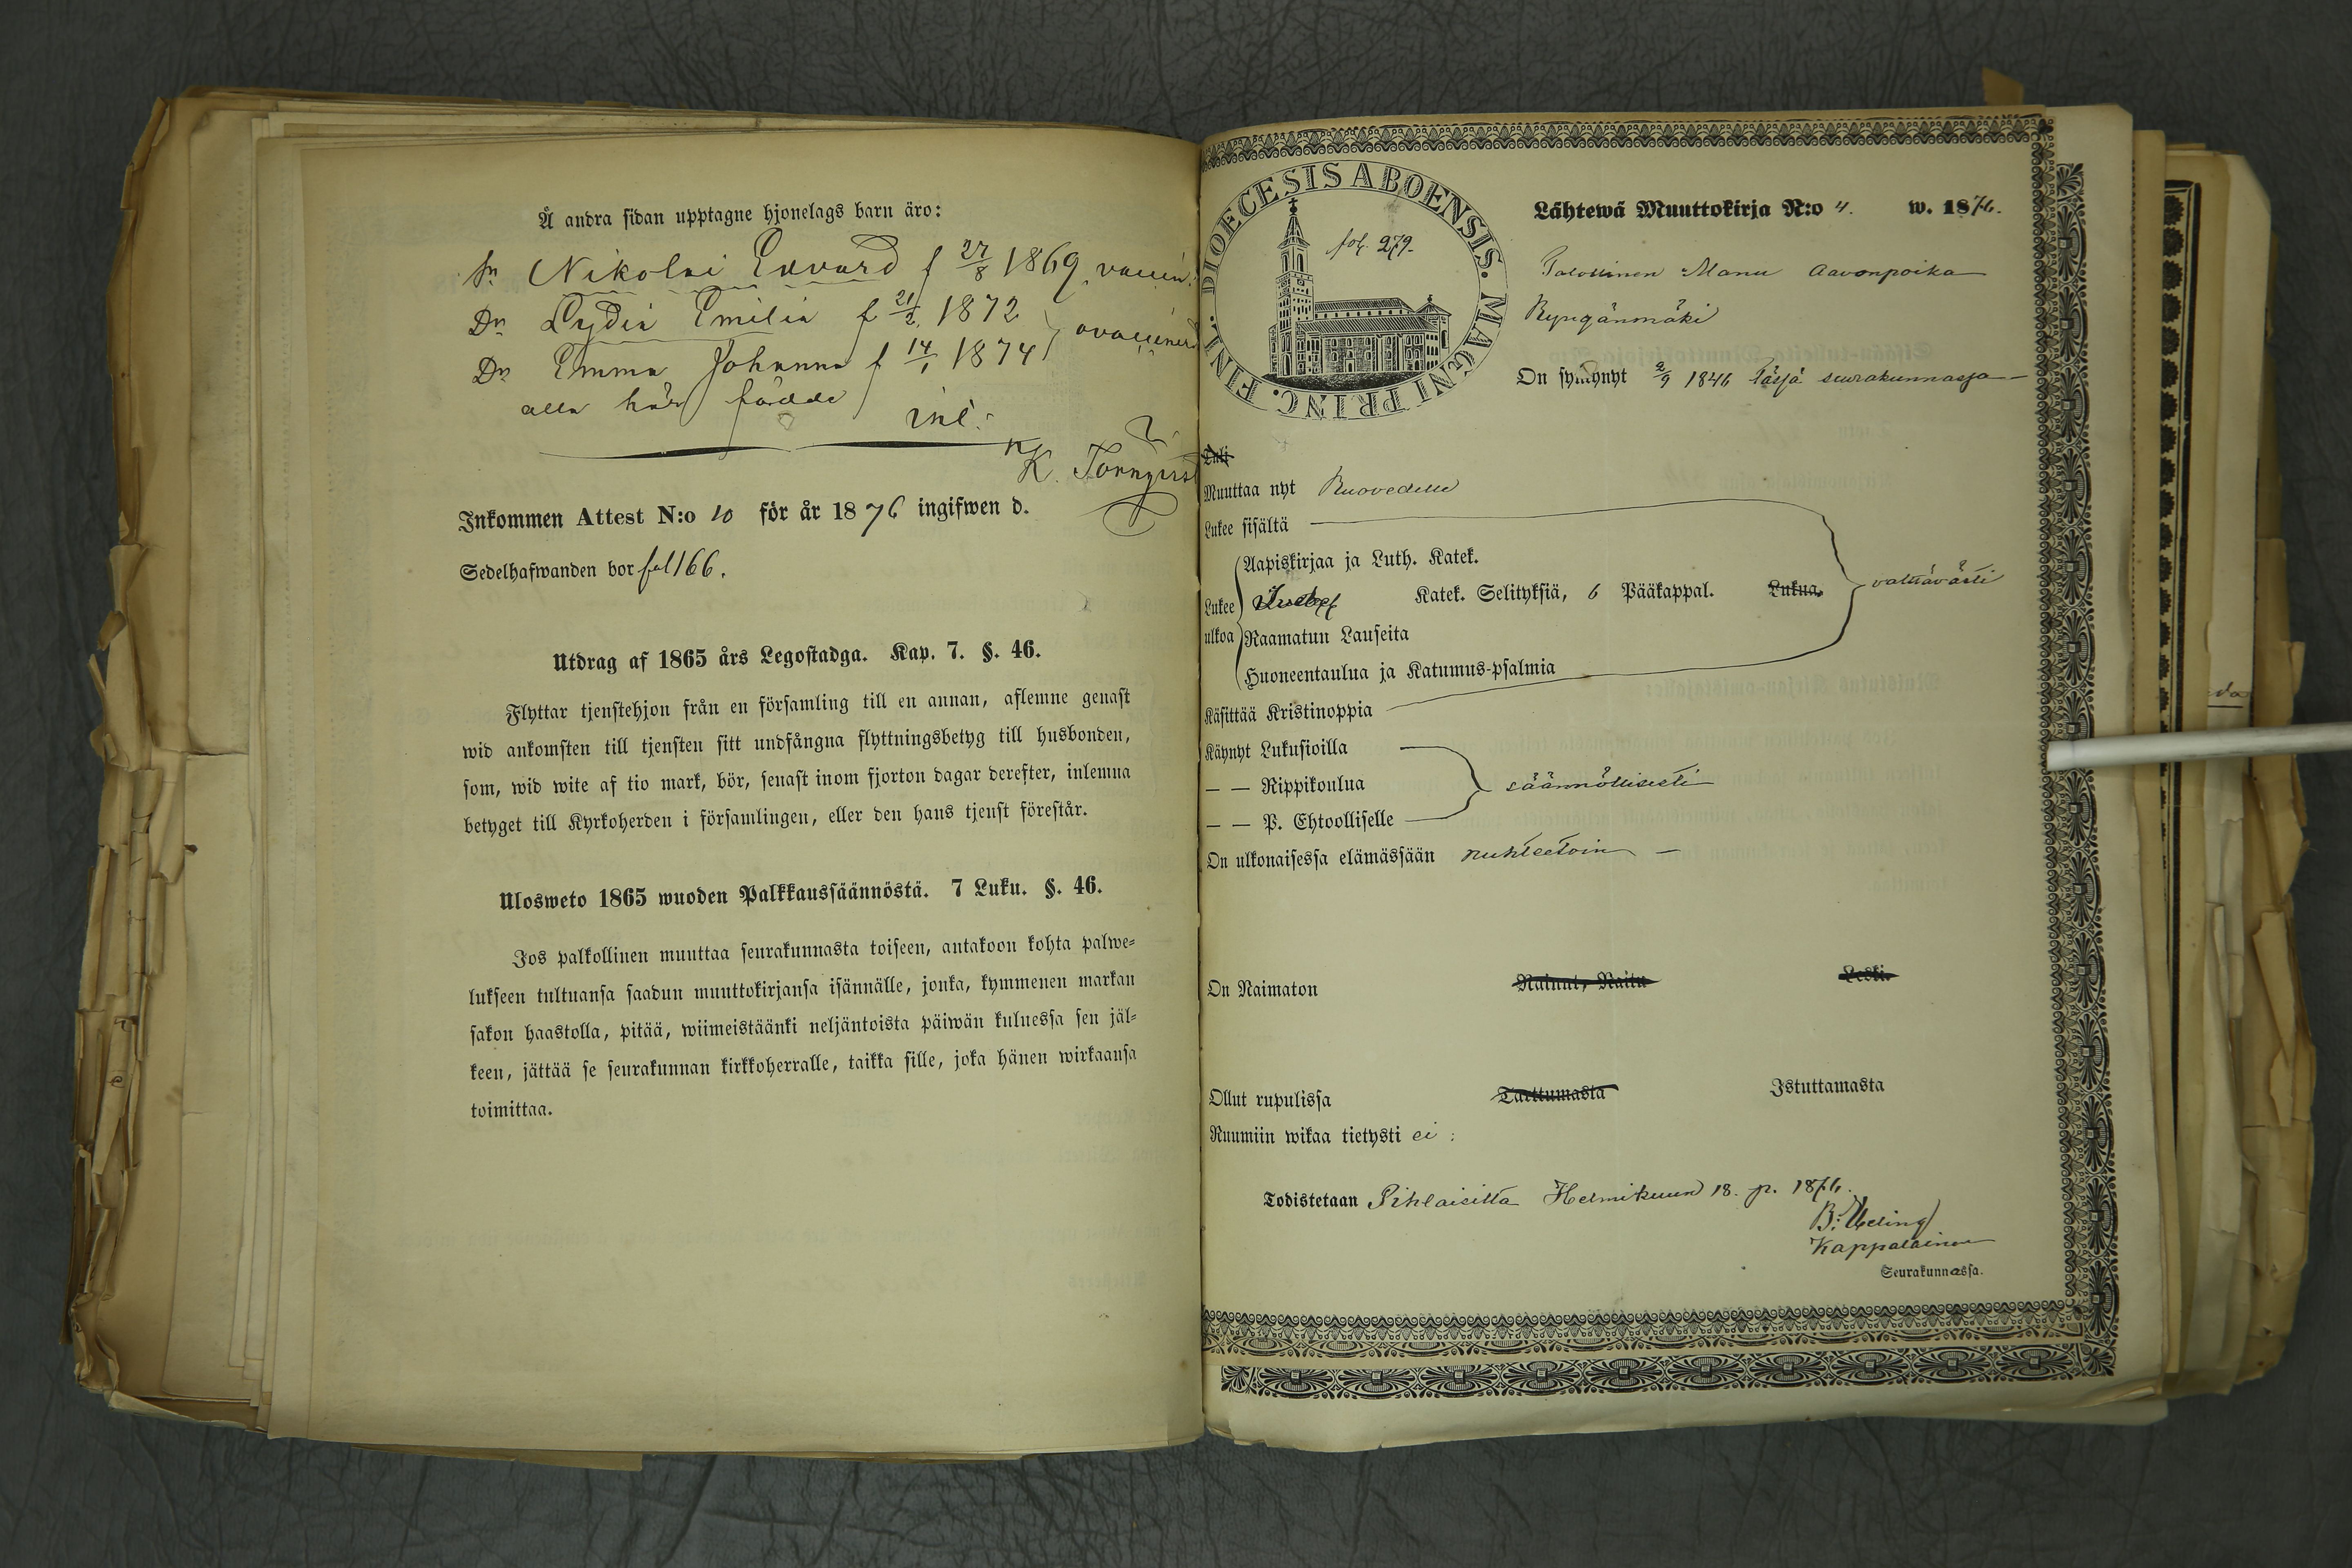 Å andra sidan upptagne hjonelags barn äro:
Sn Nikolai Edvard f 27/8 1869, vaccin.
Dn Lydia Emilia f 21/2 1872
Dn Emma Johanna f 14/1 1874 } ovaccinerd
alla här födde
K. Tornqvist
Inkommen Attest N:o 10 för år 1876 ingifwen d.
Sedelhafwanden bor fol 166.
Utdrag af 1865 års Legostadga. Kap. 7. §. 46.
Flyttar tjenstehjon från en församling till en annan, aflemne genast
wid ankomsten till tjensten sitt undfångna flyttningsbetyg till husbonden,
som, wid wite af tio mark, bör, senast inom fjorton dagar derefter, inlemna
betyget till Kyrkoherden i församlingen, eller den hans tjenst förestår.
Ulosweto 1865 wuoden Palkkaussäännöstä. 7 Luku. §. 46.
Jos palkollinen muuttaa seurakunnasta toiseen, antakoon kohta palwe-
lukseen tultuansa saadun muuttokirjansa isännälle, jonka, kymmenen markan
sakon haastolla, pitää, wiimeistäänki neljäntoista päiwän kuluessa sen jäl-
keen, jättää se seurakunnan kirkkoherralle, taikka sille, joka hänen wirkaansa
toimittaa.
DIOECESIS ABOENSIS. MAGNI PRINC. FINL.
fol. 279.
Lähtewä Muuttokirja N:o 4. w. 1876.
Manu Aavonpoika
Ryngänmäki
On syntynyt 2/9 1846 tässä seurakunnassa
Tuli
Muuttaa nyt Ruovedelle
Lukee sisältä
Aapiskirjaa ja Luth. Katek.
Lukee ulkoa Katek. Selityksiä, 6 Pääkappal. Lukua.
Raamatun Lauseita
Huoneentaulua ja Katumus-psalmia
välttävästi
Käsittää Kristinoppia
Käynyt Lukusioilla
— — Rippikoulua säännöllisesti
— — P. Ehtoolliselle
On ulkonaisessa elämässään nuhteetoin —
On Naimaton Nainut, Naitu Leski.
Ollut rupulissa Tarttumasta Istuttamasta
Ruumiin wikaa tietysti ei :
Todistetaan Pihlaisilta Helmikuun 18. p. 1876.
Kappalainen
Seurakunnassa.